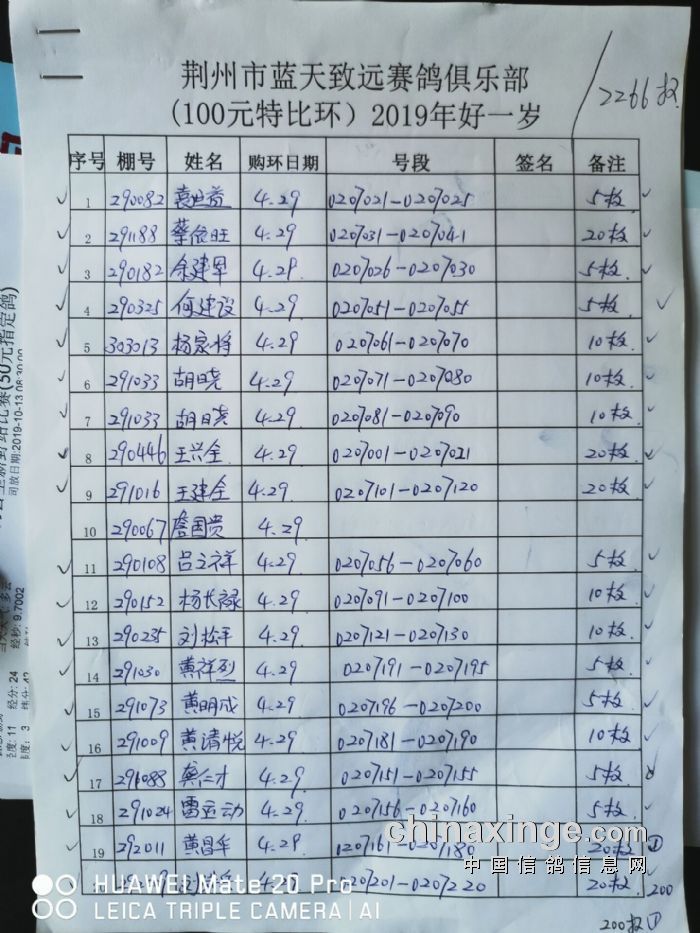 荆州市蓝天致远赛鸽俱乐部
(100元特比环) 2019年好一岁
2266枚
序号 棚号 姓名 购环日期 号段 签名 备注
1 290082 4.29 0207021-0207025 5枚
2 291188 蔡依旺 4.29 0207031-0207041 20枚
3 290182 余建军 4.29 0207026-0207030 5枚
4 290325 何建设 4.29 0207051-0207055 5枚
5 303013 杨家将 4.29 0207061-0207070 10枚
6 291033 胡晓 4.29 0207071-0207080 10枚
7 291033 胡晓 4.29 0207081-0207090 10枚
8 290446 王兴全 4.29 0207001-0207021 20枚
9 291016 王建全 4.29 0207101-0207120 20枚
10 290067 詹国贵 4.29
11 290108 吕立祥 4.29 0207056-0207060 5枚
12 290152 杨长禄 4.29 0207091-0207100 10枚
13 290235 刘松平 4.29 0207121-0207130 10枚
14 291030 黄祥烈 4.29 0207191-0207195 5枚
15 291073 黄明成 4.29 0207196-0207200 5枚
16 291009 黄清悦 4.29 0207181-0207190 10枚
17 291088 龚仁才 4.29 0207151-0207155 5枚
18 291024 雷运动 4.29 0207156-0207160 5枚
19 292011 黄昌华 4.29 0207161-0207180 20枚 ①
0207201-0207220 20枚 200
200枚①
chinaxinge.com
中国信鸽信息网
HUAWEI Mate 20 Pro
LEICA TRIPLE CAMERA | AI
(50元指定鸽)
司放日期:2019-10-13 08:30:00
经秒: 9.7002
经分: 24